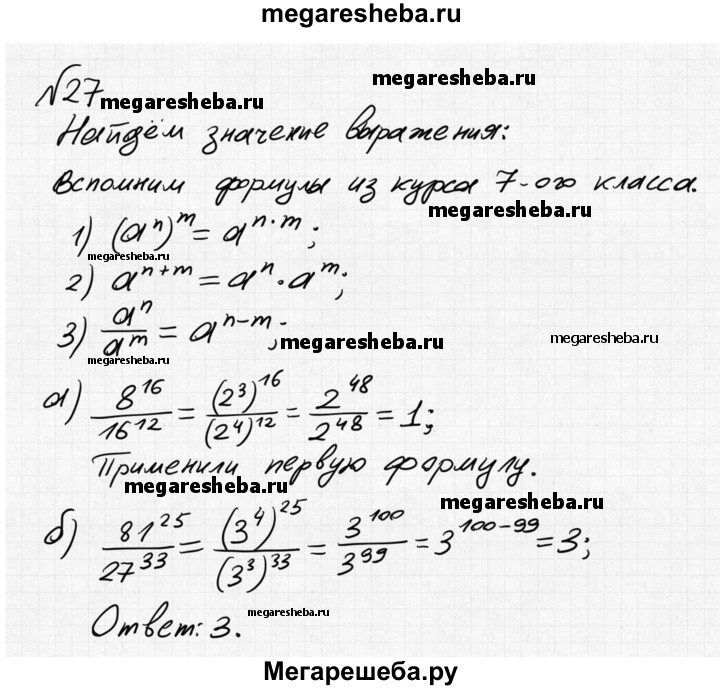 megaresheba.ru
№27 megaresheba.ru
megaresheba.ru
Найдём значение выражения:
Вспомним формулы из курса 7-ого класса.
megaresheba.ru
1) (aⁿ)ᵐ = aⁿ·ᵐ;
megaresheba.ru
2) aⁿ⁺ᵐ = aⁿ·aᵐ;
3) aⁿ/aᵐ = aⁿ⁻ᵐ;
megaresheba.ru
megaresheba.ru
megaresheba.ru
а) 8¹⁶/16¹² = (2³)¹⁶/(2⁴)¹² = 2⁴⁸/2⁴⁸ = 1;
Применили первую формулу.
megaresheba.ru
megaresheba.ru
б) 81²⁵/27³³ = (3⁴)²⁵/(3³)³³ = 3¹⁰⁰/3⁹⁹ = 3¹⁰⁰⁻⁹⁹ = 3;
megaresheba.ru
Ответ: 3.
Мегарешеба.ру